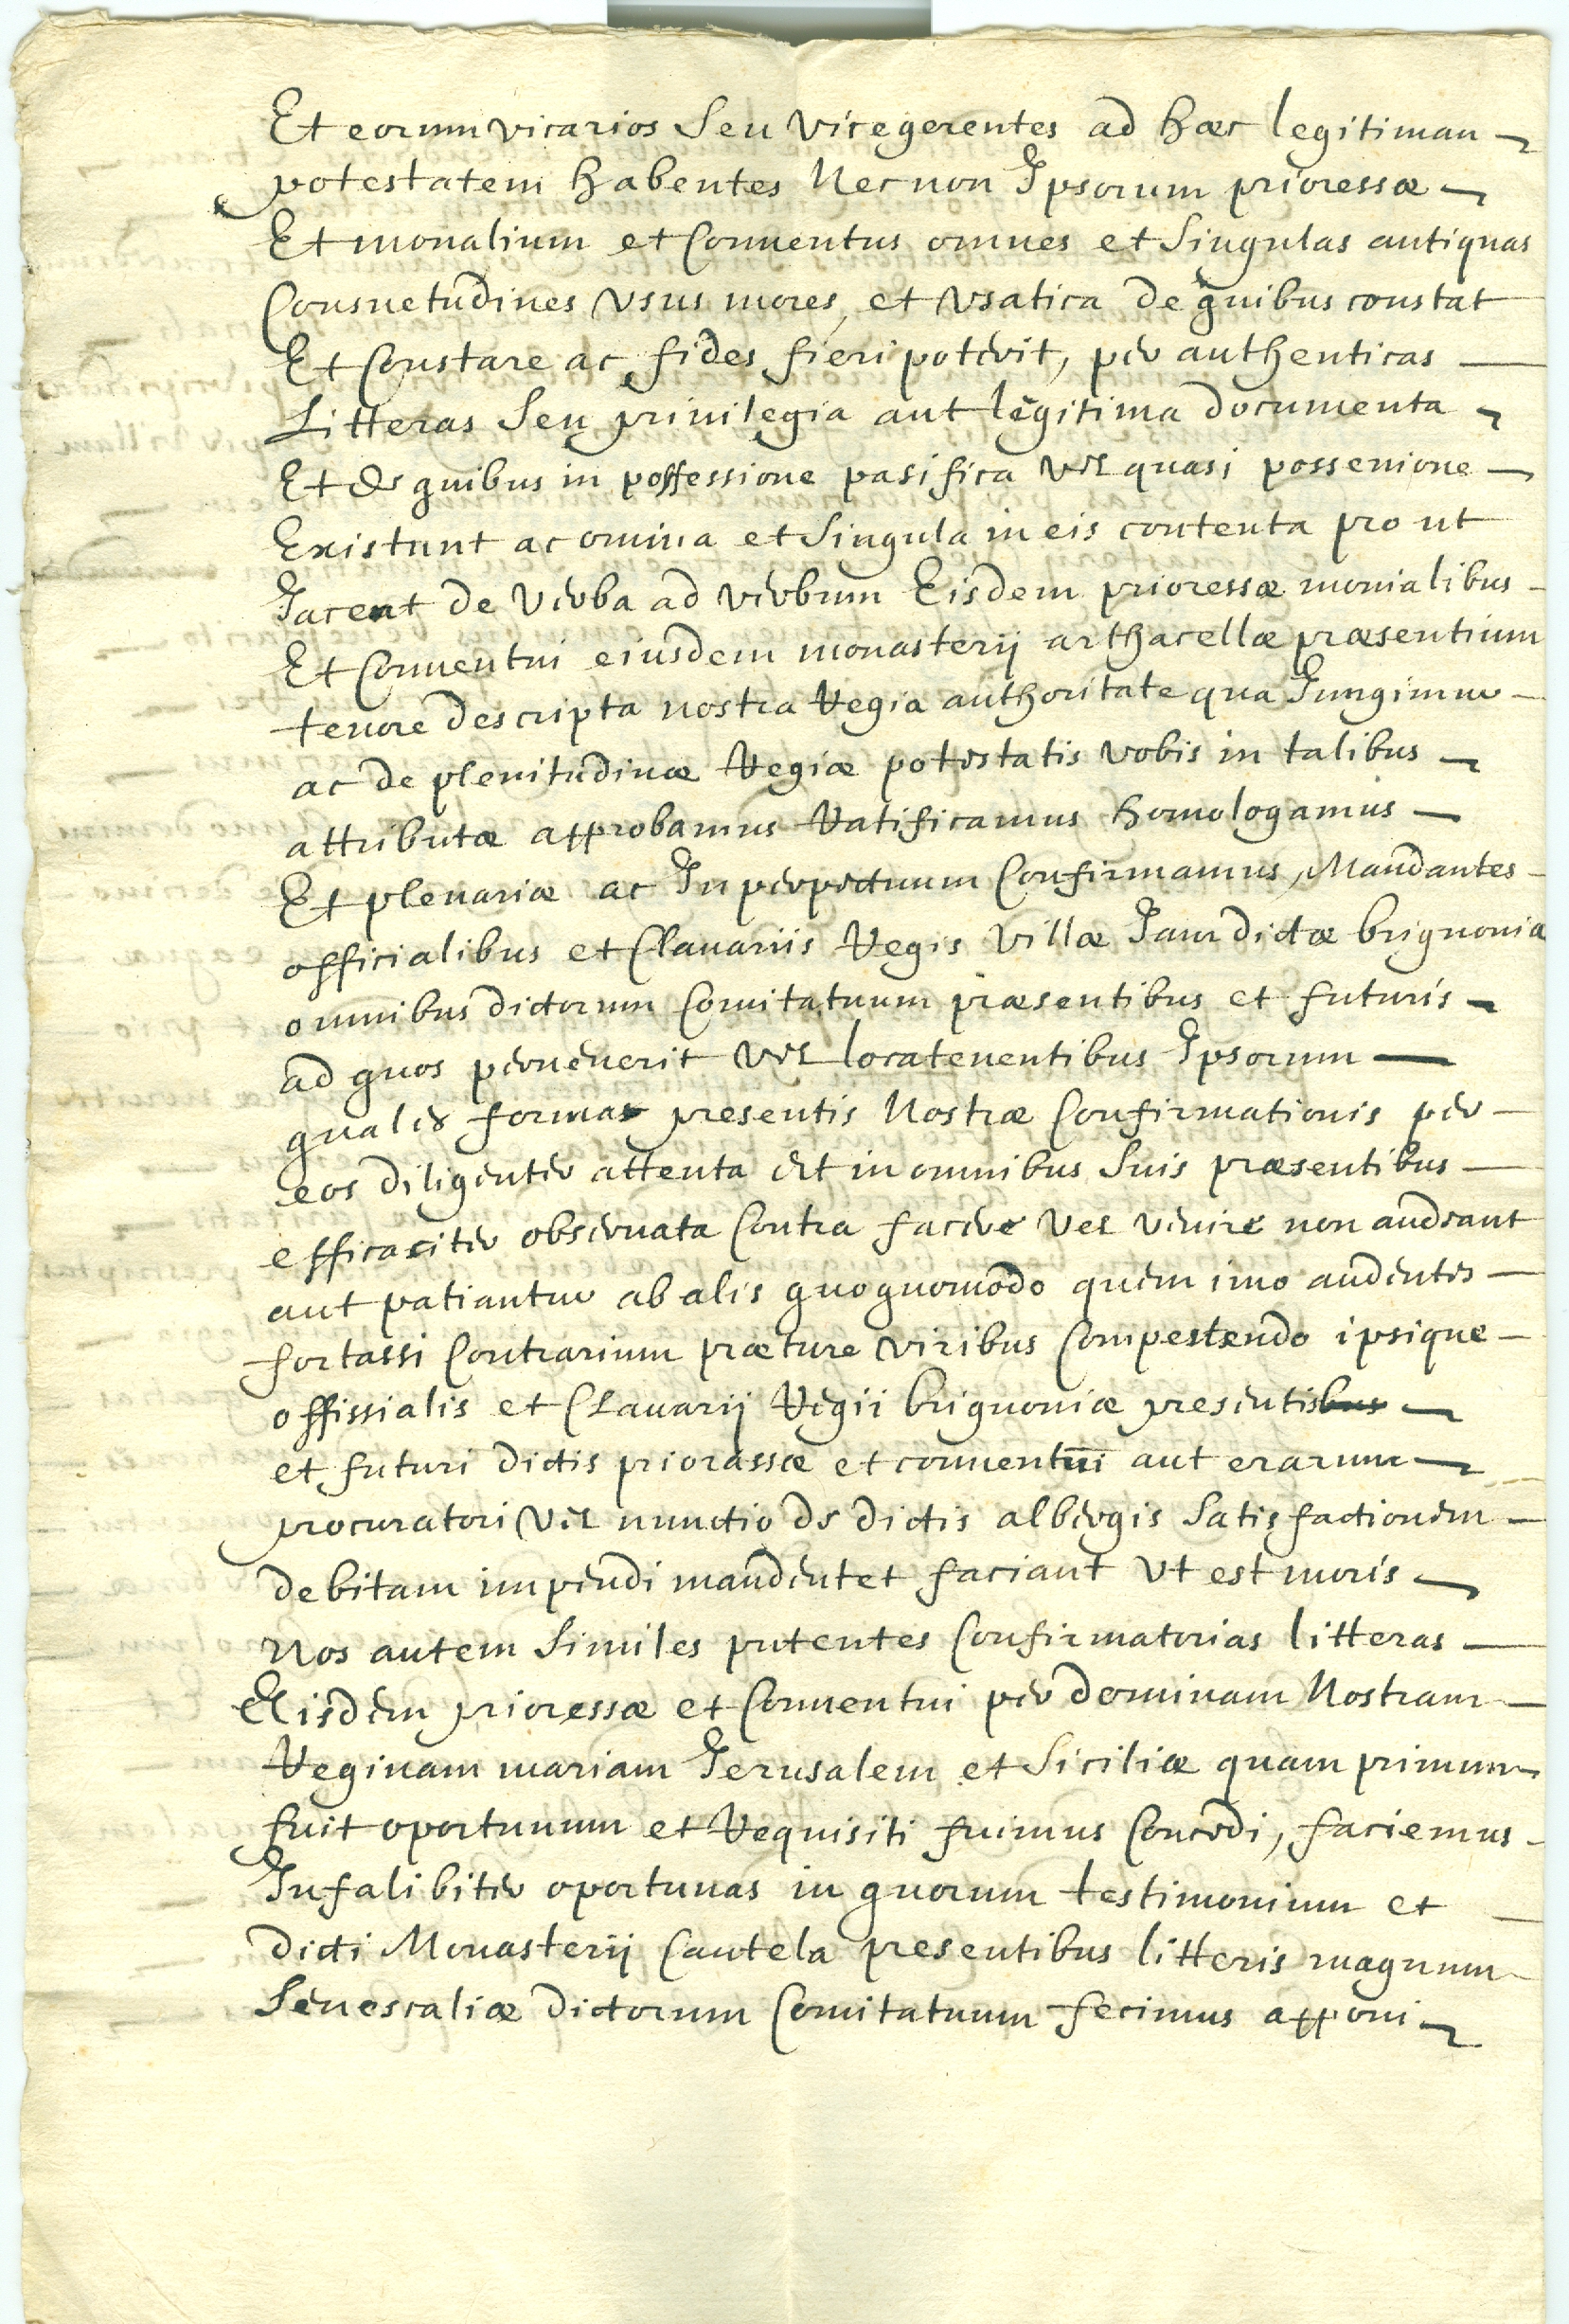 Et eorum vicarios Seu vicegerentes ad hæc legitiman
potestatem habentes Nec non Ipsorum prioressæ
Et monalium et Conuentus omnes et Singulas antiquas
Consuetudines vsus mores, et vsatica de quibus constat
Et Constare ac fides fieri poterit, per authenticas
Litteras Seu priuilegia aut legitima documenta
Et de quibus in possessione pasifica vel quasi possenione
Existunt ac omnia et Singula in eis contenta pro ut
Jacent de verba ad verbum Eisdem prioressæ monialibus
Et Conuentui eiusdem monasterij arthacellæ præsentium
tenore descripta nostra Regia authoritate qua Jungimur
ac de plenitudinæ Regiæ potestatis vobis in talibus
attributæ approbamus Ratificamus homologamus
Et plenariæ ac In perpetuum Confirmamus, Mandantes
officialibus et Clauariis Regis villæ Jamdictæ brignonia
omnibus dictorum Comitatuum præsentibus et futuris
ad quos peruenerit vel locatenentibus Ipsorum
quales formas presentis Nostræ Confirmationis per
eos diligenter attenta et in omnibus Suis præsentibus
efficaciter obseruata Contra facere vel venire non audeant
aut patiantur ab alis quoquomodo quem imo audentes
fortassi Contrarium præture viribus Compestendo ipsique
offissialis et Clauarij Regii brignoniæ presentisbus
et futuri dictis priorassæ et conuentui aut erarum
procuratori vel nunctio de dictis albergis Satisfactionem
debitam impendi mandentet faciant vt est moris
Nos autem Similes putentes Confirmatorias litteras
Eisdem prioressæ et Conuentui per dominam Nostram
Reginam mariam Jerusalem et Siciliæ quam primum
fuit oportunum et Requisiti fuimus Concedi, faciemus
Infalibiter oportunas in quorum testimonium et
dicti Monasterij Cautela presentibus litteris magnum
Senescaliæ dictorum Comitatuum fecimus apponi